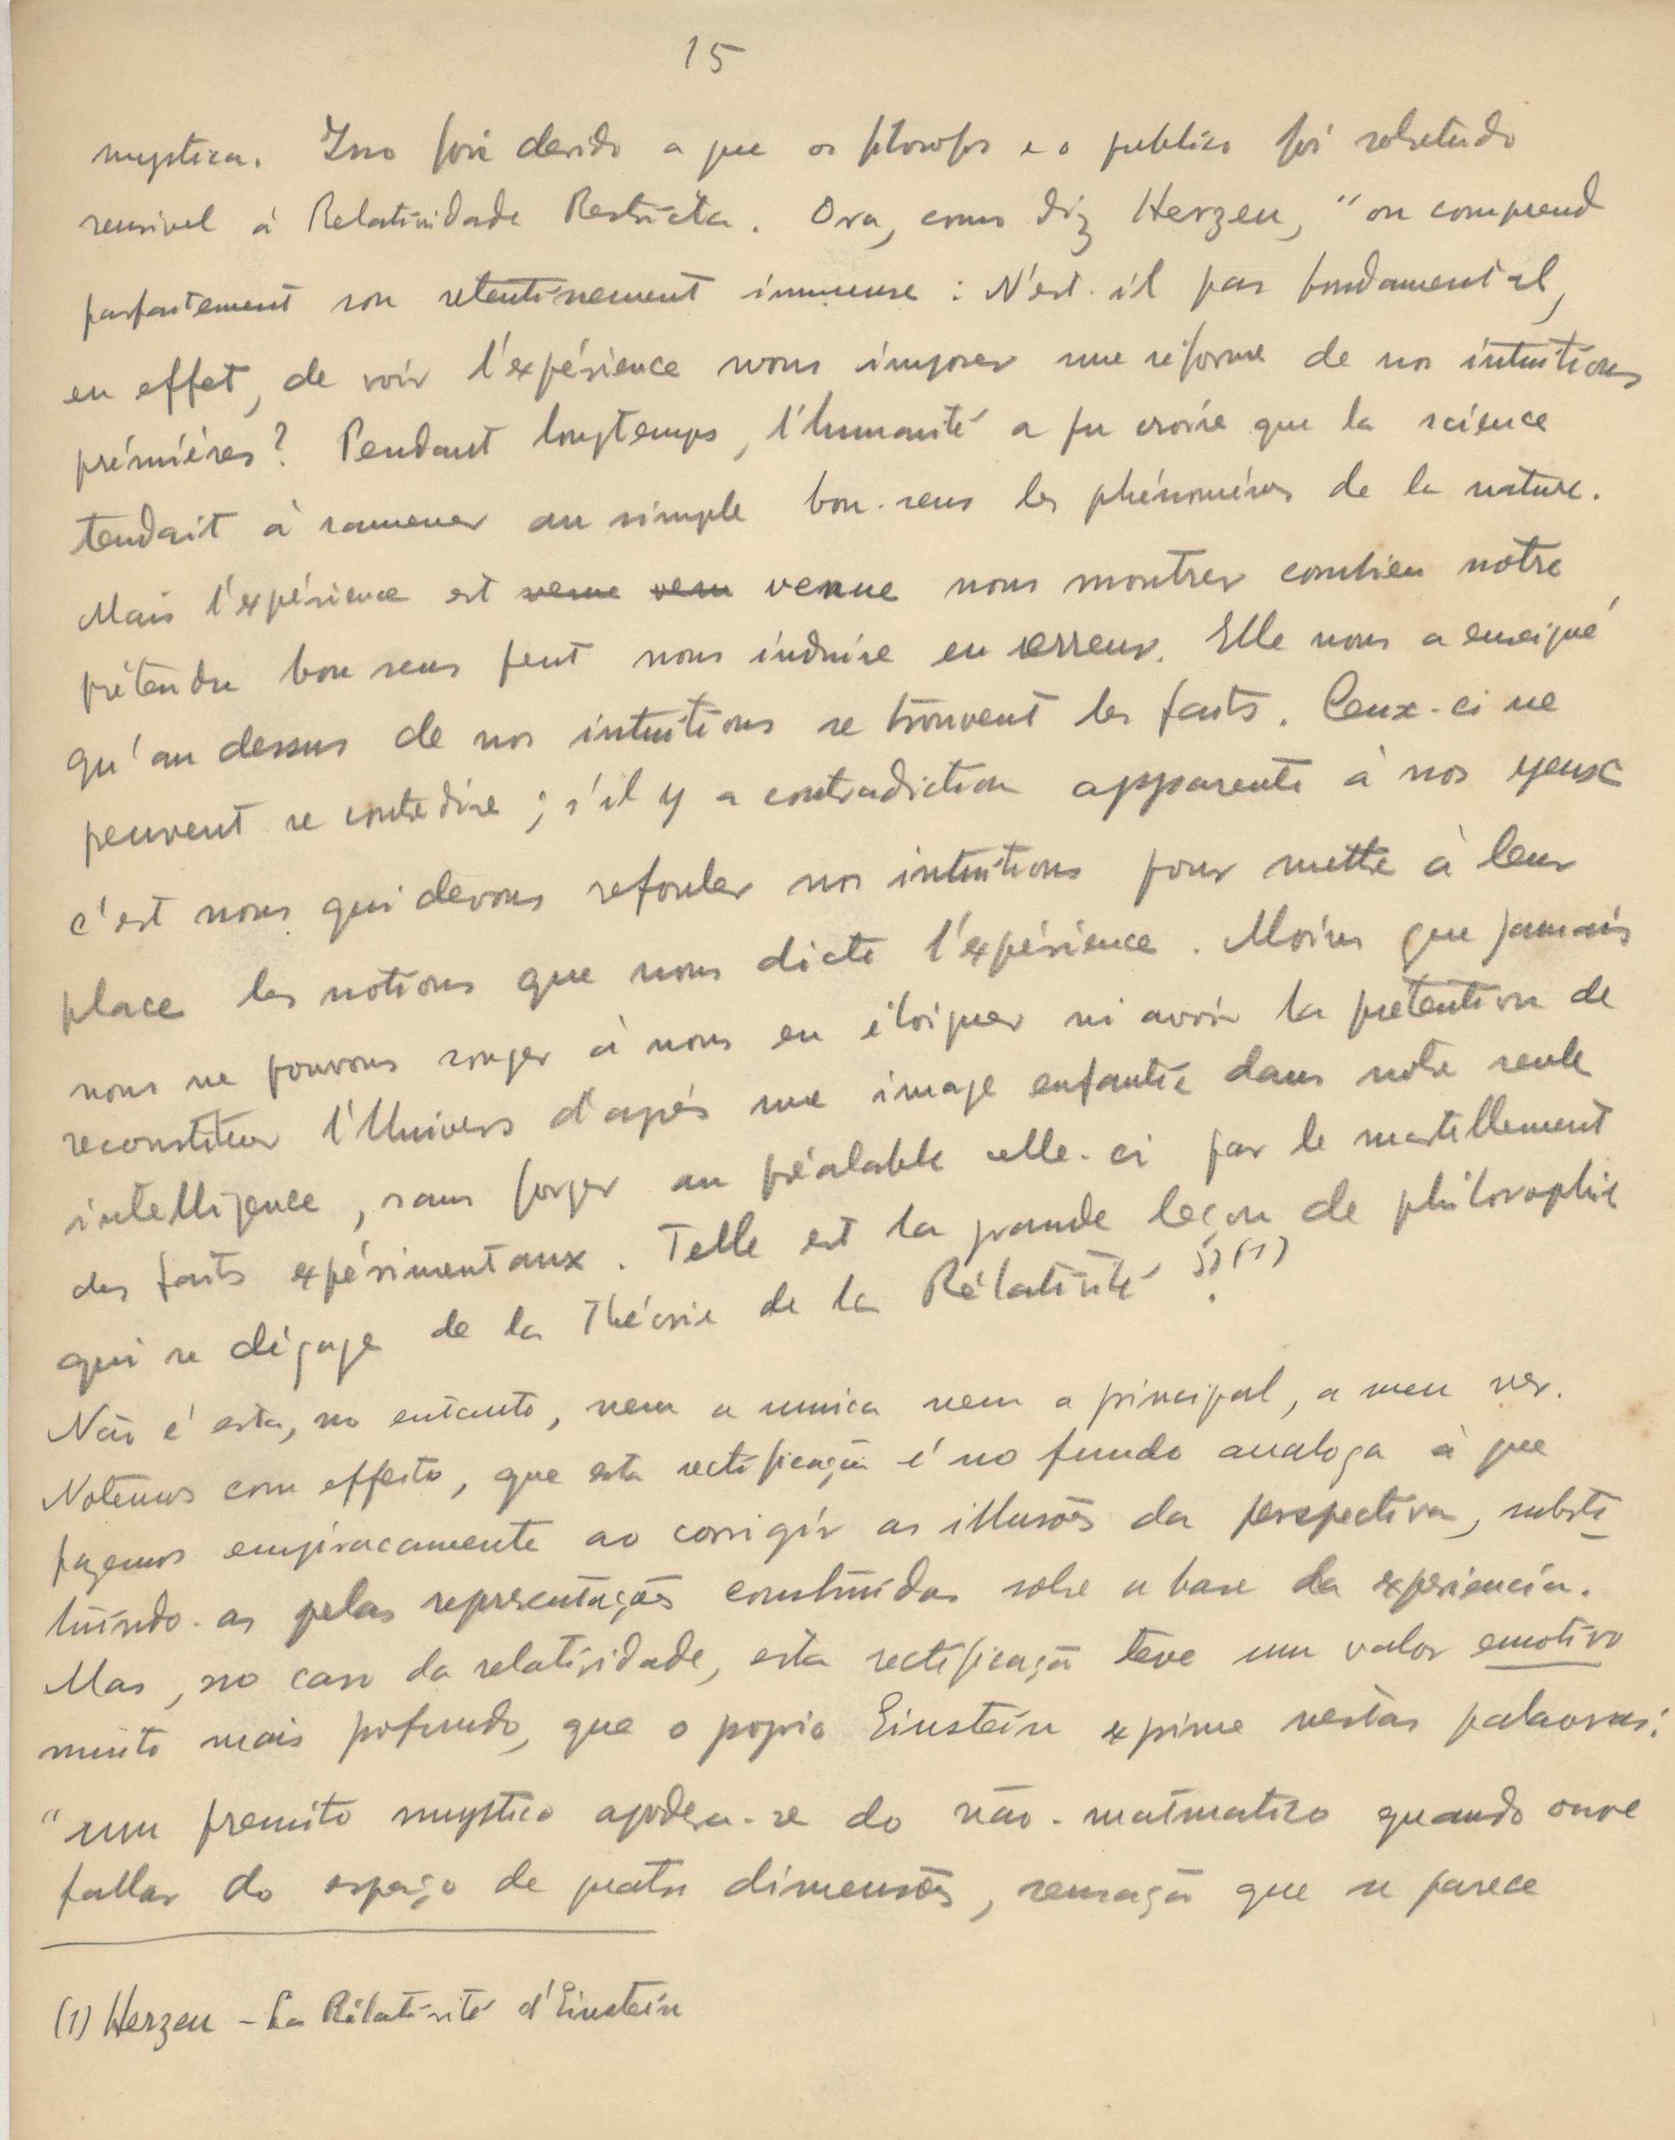 15
mystica. Isso foi devido a que os filosofos e o publico foi sobretudo
sensivel á Relatividade Restricta. Ora, como diz Herzen, "on comprend
parfaitement son retentissement immense : N'est-il pas fondamental,
en effet, de voir l'expérience nous imposer une réforme de nos intuitions
prémiéres? Pendant longtemps, l'humanité a pu croire que la science
tendait à ramener au simple bon-sens les phénoménes de la nature.
Mais l'expérience est venue venu venue nous montrer combien notre
prétendu bon sens peut nous induire en erreur. Elle nous a enseigné
qu'au dessus de nos intuitions se trouvent les faits. Ceux-ci ne
peuvent se contredire ; s'il y a contradiction apparente à nos yeux
c'est nous qui devons refouler nos intuitions pour mettre à leur
place les notions que nous dicte l'expérience. Moins que jamais
nous ne pouvons songer à nous en éloigner ni avoir la prétention de
reconstituer l'Univers d'aprés une image enfantée dans notre seule
intelligence, sans forger au préalable celle-ci par le martellement
des faits expérimentaux. Telle est la grande leçon de philosophie
qui se dégage de la Théorie de la Rélativité". (1)
Não é esta, no entanto, nem a unica nem a principal, a meu ver.
Notemos com effeito, que esta rectificação é no fundo analoga à que
fazemos empiricamente ao corrigir as illusões da perspectiva, substi-
tuindo-as pelas representações construidas sobre a base da experiencia.
Mas, no caso da relatividade, esta rectificação teve um valor emotivo
muito mais profundo, que o proprio Einstein exprime nestas palavras:
"um fremito mystico apodera-se do não-matmatico quando ouve
fallar do espaço de quatro dimensões, sensação que se parece
(1) Herzen - La Rélativité d'Einstein